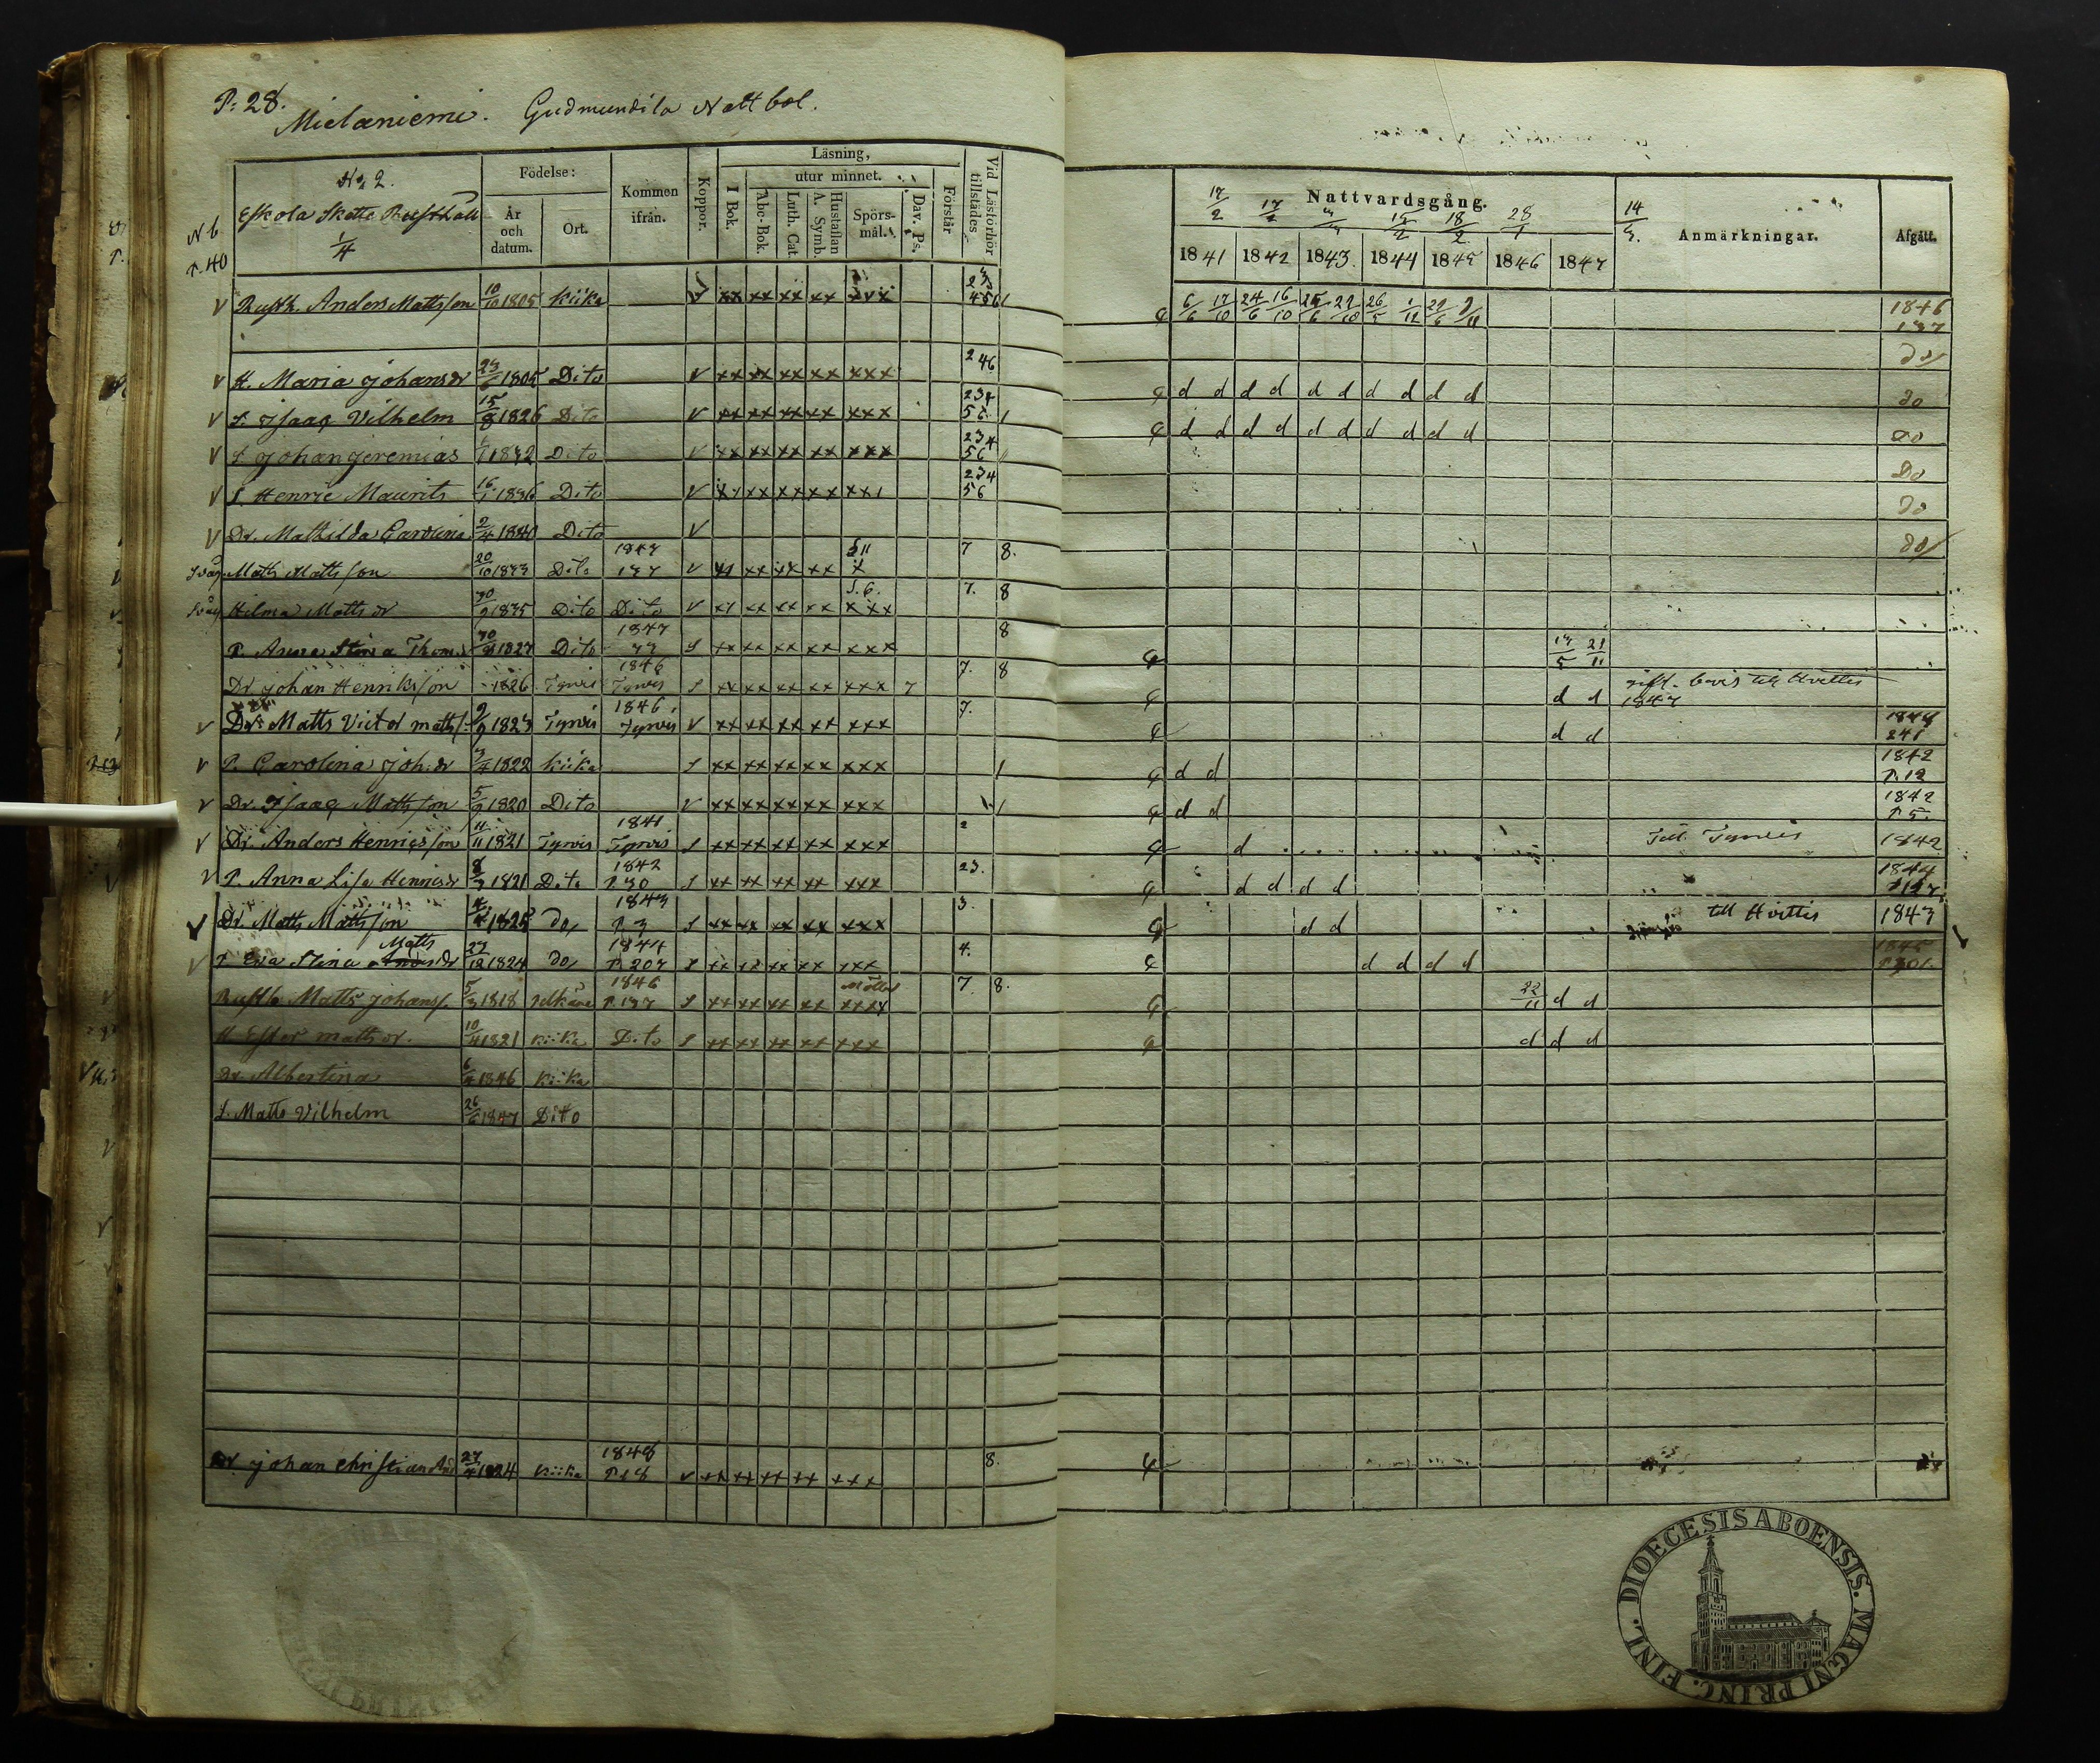 P: 28.
Mielaniemi. Gudmundila Nattbol.
N:o 2.
Eskola Skatte Rusthåll
1/4
N 6
P. 40
Födelse:
År och datum.
Ort.
Kommen ifrån.
Koppor.
Läsning,
I Bok.
utur minnet.
Abc-Bok.
Luth. Cat.
Hustaflan A. Symb.
Spörs-mål.
Dav. Ps.
Förstår
Vid Läsförhör tillstädes
Nattvardsgång.
17/2 17/2 15/2 18/2 28/1 14/3.
1841 1842 1843. 1844 1845 1846 1847
Anmärkningar.
Afgått.
v Rusth. Anders Mattsson 10/10 1805 Kiika v xx xx xx xx xxx 23 456 1 6/6 17/10 24/6 16/10 25/6 22/10 26/5 1/11 22/6 9/11 1846 137
v H. Maria Johansdr 23/6 1805 Dito v xx xx xx xx xxx 246 d d d d d d d d d d do
v S. Isaaq Vilhelm 15/8 1826 Dito v xx xx xx xx xxx 234 56 1 d d d d d d d d d d do
v S Johan Jeremias 1832 Dito v xx xx xx xx xxx 234 56 do
v S. Henric Maurits 16/1 1836 Dito v xx xx xx xx xx1 234 56 Do
v Dr. Mathilda Carolina 2/4 1840 Dito v do
Svåg. Matts Mattsson 20/10 1833 Dito 1847 137 v xx xx xx xx x 7 8. do
Svåg Hilma Mattsdr 30/9 1835 Dito Dito v xx xx xx xx S. 6. xxx 7. 8
P. Anna Stina Thomsd 1827 Dito 1847 S xx xx xx xx xxx 8 21/11
Dr Johan Henriksson 1826 Tyrvis 1846 Tyrvis S xx xx xx xx xxx 7. 8 d d bevis till Hvittis 1847
v Dr. Matts Victor Matts. 9/9 1823 Tyrvis 1846 Tyrvis v xx xx xx xx xxx 7. d d 241
v P. Carolina Joh.dr 3/4 1822 Kiika S xx xx xx xx xxx 1 d d 1842 P. 12
v Dr. Isaaq Mattsson 5/2 1820 Dito v xx xx xx xx xxx 1 d d 1842 P 5.
v Dr. Anders Henricsson 11/11 1821 Tyrvis 1841 Tyrvis S xx xx xx xx xxx 2 d Till Tyrvis 1842
v P. Anna Lisa Henricsdr 8/3 1821 Dito 1842 P. 30 S xx xx xx xx xxx 23. d d d d 1844
v Dr. Matts Mattsson 1825 do, 1843 P. 3 S xx xx xx xx xxx 3. d d till Hvittis 1843
v P Eva Stina Matts Andersdr 27/12 1824 do, 1844 P. 207 S xx xx xx xx xxx 4. d d d d 1845
Rusth Matts Johanss. 5/3 1818 1846 P. 137 S xx xx xx xx xxxx 7. 8. 22/11 d d
H Ester Mattsdr. 10/4 1821 Kiika Dito S xx xx xx xx xxx d d d
Dr. Albertina 6/4 1846 Kiika
S. Matts Vilhelm 26/6 1847 Dito
Dr Johan Christian And 27/4 1824 Kiika 1848 P. 18 v xx xx xx xx xxx 8.
DIOECESIS ABOENSIS. MAGNI PRINC. FINL.